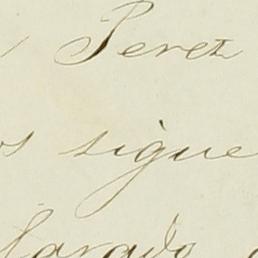 Perez
os sigue
larado